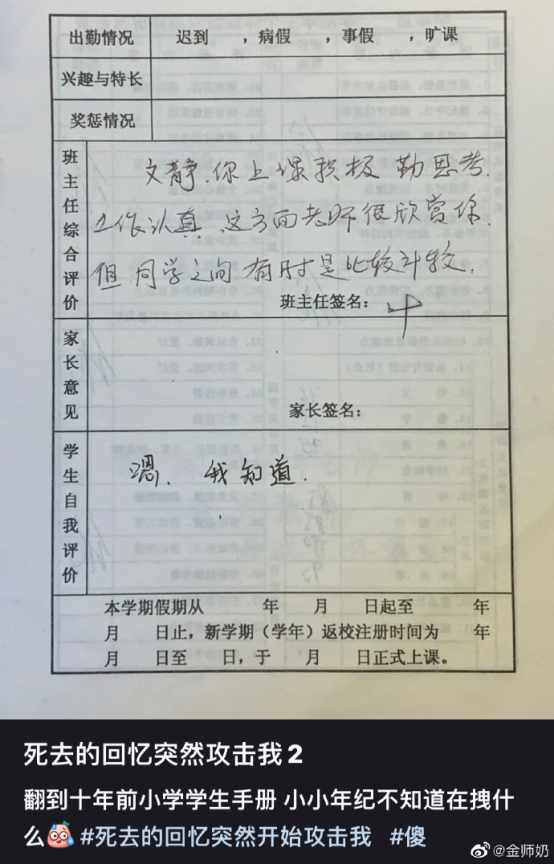 出勤情况 迟到 ,病假 ,事假 ,旷课
兴趣与特长
奖惩情况
班主任综合评价
文静.你上课积极 勤思考.
工作认真 这方面老师很欣赏你.
但 同学之间 有时是比较计较.
班主任签名:
家长意见
家长签名:
学生自我评价
我知道.
本学期假期从 年 月 日起至 年
月 日止,新学期(学年)返校注册时间为 年
月 日至 日,于 月 日正式上课。
死去的回忆突然攻击我2
翻到十年前小学学生手册 小小年纪不知道在拽什
么 #死去的回忆突然开始攻击我 #傻
@金师奶